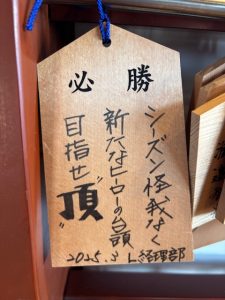 必勝
シーズン怪我なく
新たなヒーローの台頭
目指せ“頂”
2025.3 L経理部